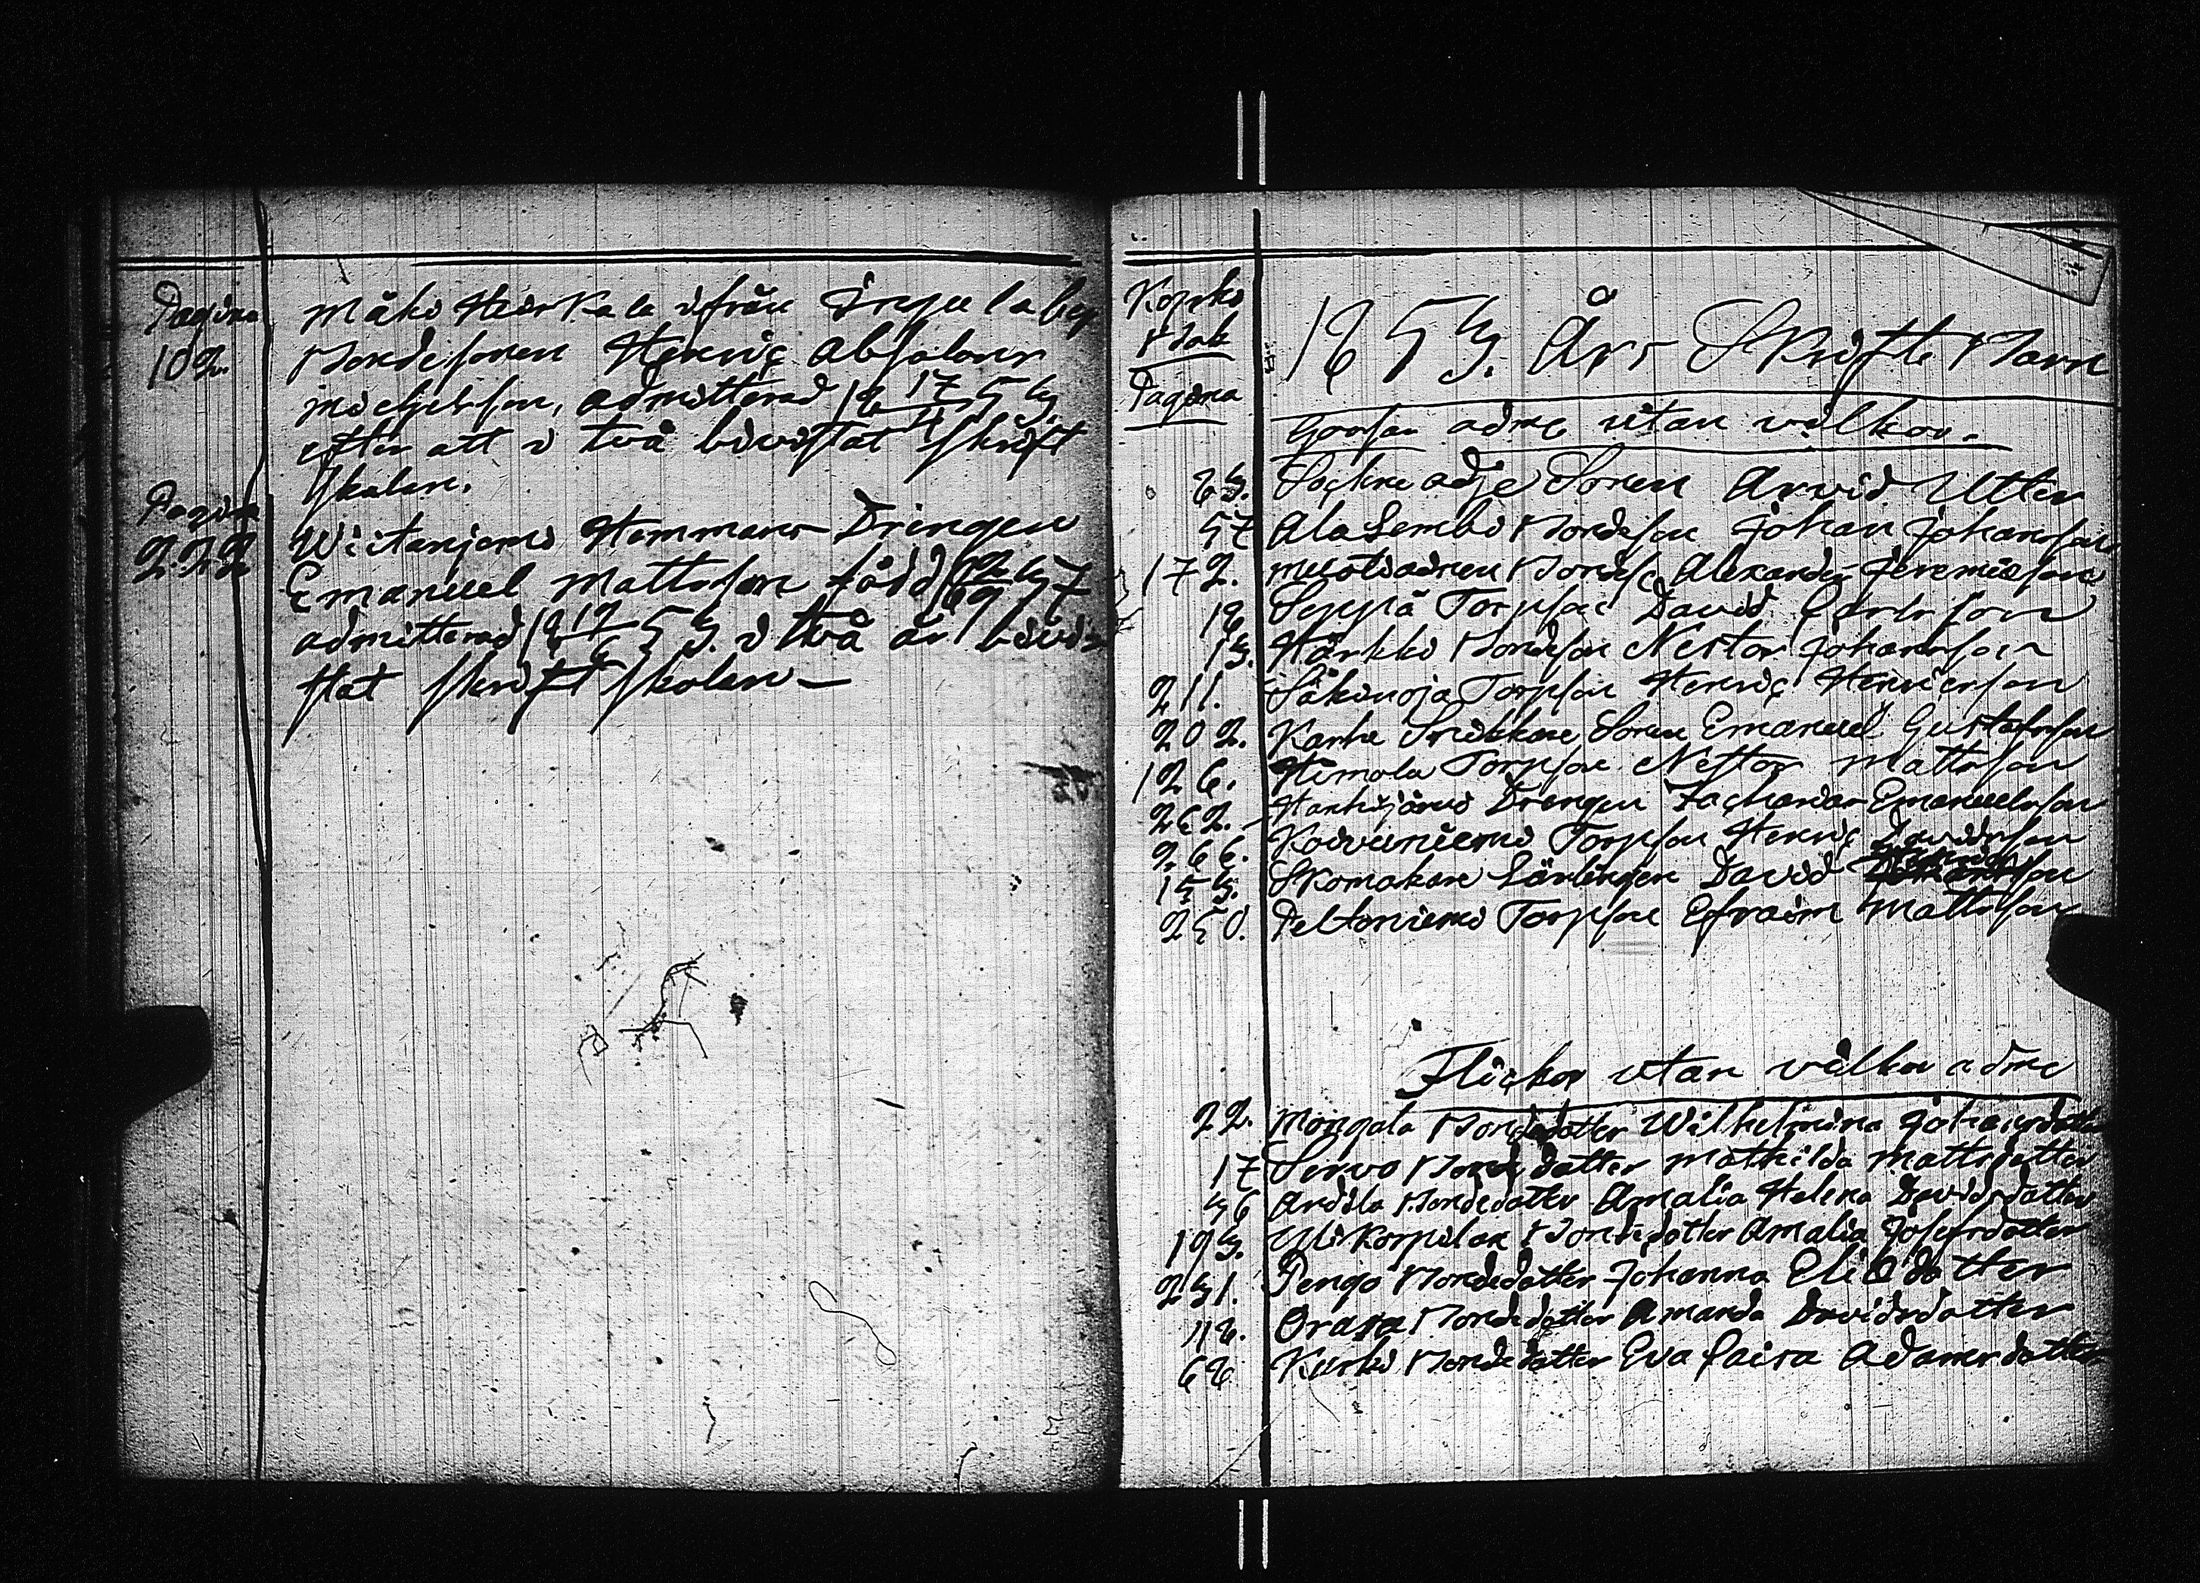 Pagina
102.
Mäki Heikkala ifrån
Bondesonen Henric Absalons
Michelsson, admitterad 18 17/4 53
efter att i två bivistat Skrift
Skolan.
Pagina
222
Witaniemi Hemmans Drengen
Emanuel Mattsson född
admitterad i två år bivi-
stat Skrift Skolan
Kyrko
Bok
Pagina
1853. Års Skrifte Barn
Gossar adm: utan vilkor.
23. Sockne Adj: Sonen Arvid Utter
57 Ala Sembi Bondeson Johan Johansson
172. Bondes: Alexander Jeremiæson
18 Seppä Torpson David Carlsson
13. Härkki Bondeson Nestor Johansson
211. Säkinoja Torpson Henric Henricsson
202. Karhe Snikkare Sonen Emanuel Gustafsson
126. Himola Torpson Nestor Mattsson
262. Hankijärvi Drengen Zacharias Emanuelsson
266. Koivuniemi Torpson Henric Davidsson
153. Skomakare Lärlingen David
250. Peltoniemi Torpson Efraim Mattsson
Flickor utan vilkor adm:
22. Mongola Bondedotter Wilhelmina Johansdotter
17 Sirvo Bondedotter Mathilda Mattsdotter
36 Andila Bondedotter Amalia Helena Davidsdotter
193. Yli Korpilax Bondedotter Amalia Josefsdotter
231. Pengo Bondedotter Johanna Eliædotter
118. Orasa Bondedotter Amanda Davidsdotter
68 Kurki Bondedotter Eva Caisa Adamsdotter